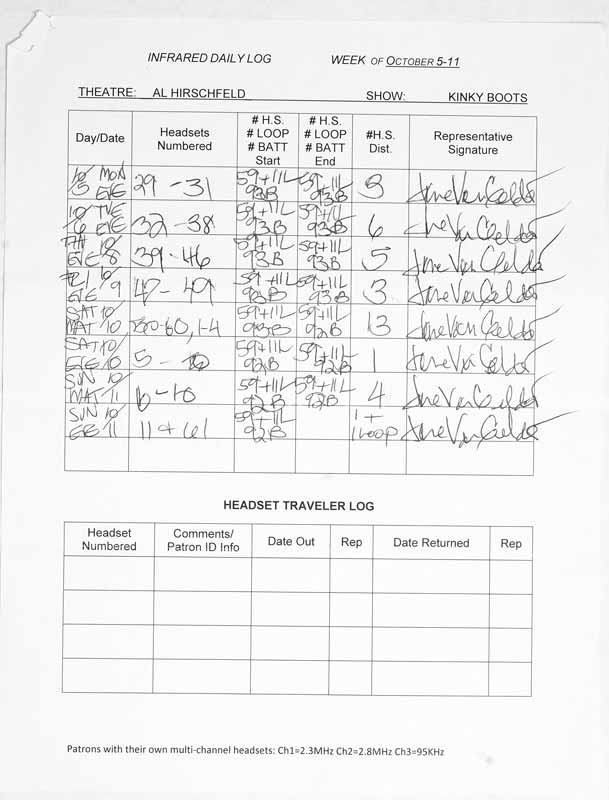 INFRARED DAILY LOG WEEK OF OCTOBER 5-11
THEATRE: AL HIRSCHFELD SHOW: KINKY BOOTS
Day/Date Headsets Numbered # H.S. # LOOP # BATT Start # H.S. # LOOP # BATT End #H.S. Dist. Representative Signature
10/5 MON EVE 29-31 59+11L 93B 59+11L 93B 3 Jane Van Gelder
10/6 TUE EVE 32-38 59+11L 93B 59+11L 93B 6 Jane Van Gelder
TH 10/8 EVE 39-46 59+11L 93B 59+11L 93B 5 Jane Van Gelder
FRI 10/9 EVE 47-49 59+11L 93B 59+11L 93B 3 Jane Van Gelder
SAT 10/10 MAT 50-60, 1-4 59+11L 93B 59+11L 92B 13 Jane Van Gelder
SAT 10/10 EVE 5 - 59+11L 92B 59+11L 92B 1 Jane Van Gelder
SUN 10/11 MAT 6-10 59+11L 92B 59+11L 92B 4 Jane Van Gelder
SUN 10/11 EVE 11 + 61 59+11L 92B 1 + 1 LOOP Jane Van Gelder
HEADSET TRAVELER LOG
Headset Numbered Comments/ Patron ID Info Date Out Rep Date Returned Rep
Patrons with their own multi-channel headsets: Ch1=2.3MHz Ch2=2.8MHz Ch3=95KHz